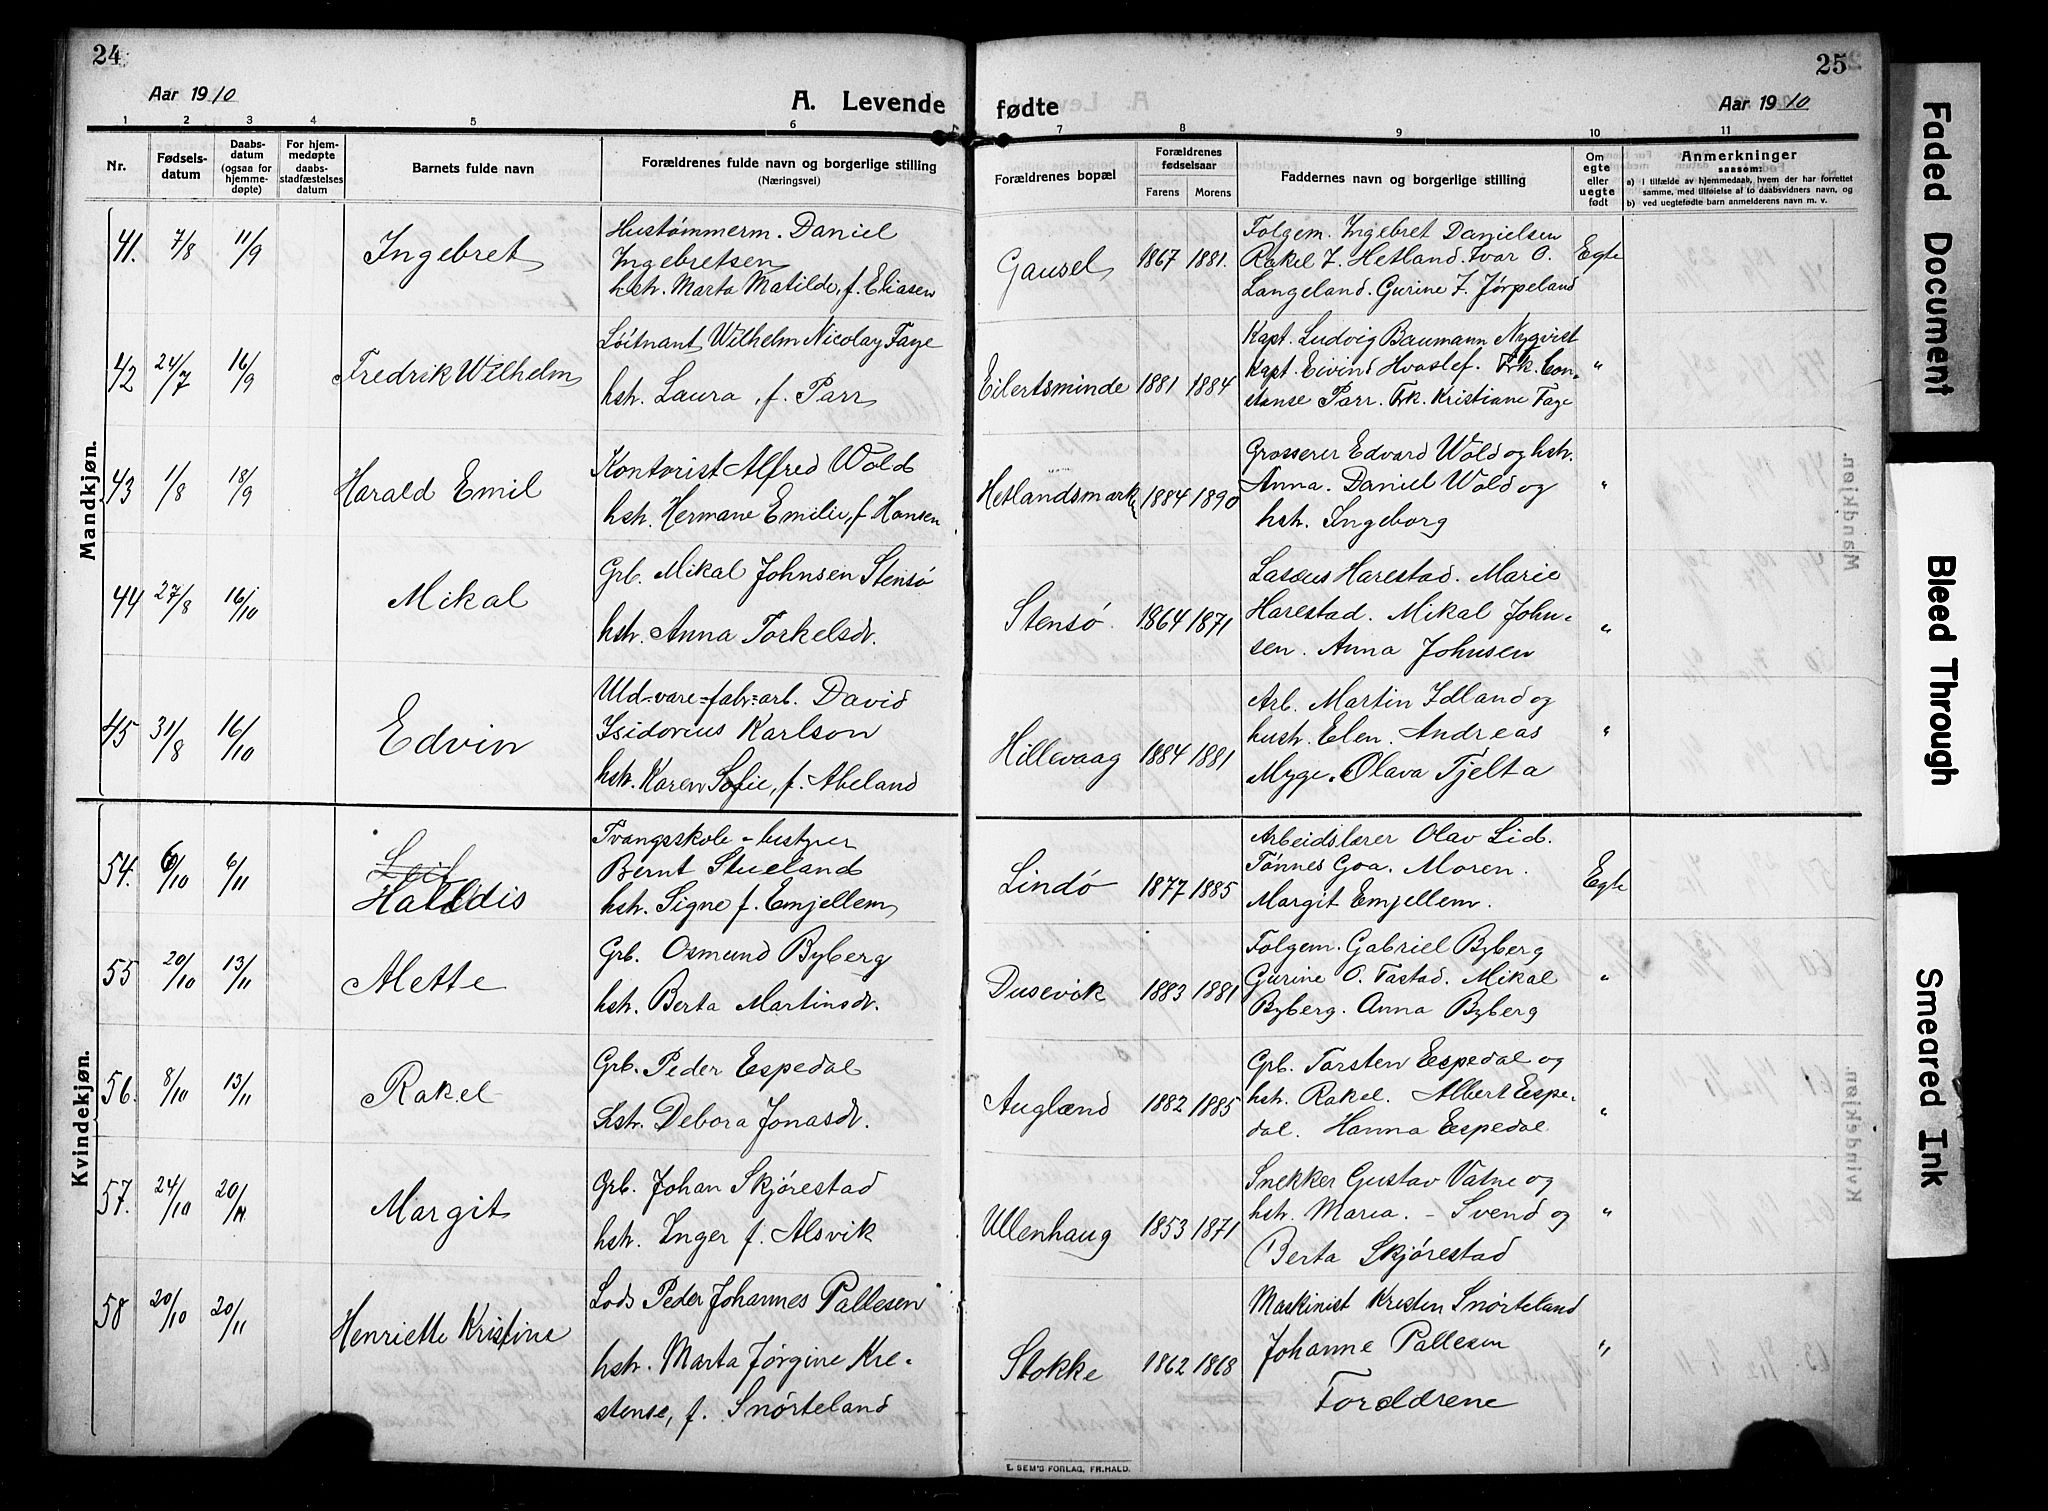 24
Aar 1910
A. Levende
1 2 3 4 5 6
Nr.
Fødsels-
datum
Daabs-
datum
(ogsaa for
hjemme-
døpte)
For hjem-
medøpte
daabs-
stadfæstelses
datum
Barnets fulde navn
Forældrenes fulde navn og borgerlige stilling
(Næringsvei)
Mandkjøn.
41. 7/8 11/9 Ingebret
Hustømmerm. Daniel
Ingebretsen
hstr. Marta Matilde, f. Eliasen
42 24/7 16/9 Fredrik Wilhelm
Løitnant Wilhelm Nicolay Faye
hstr. Laura, f. Parr
43 1/8 18/9 Harald Emil
Kontorist Alfred Wold
hstr. Hermane Emilie, f Hansen
44 27/8 16/10 Mikal
Grb. Mikal Johnsen Stensø
hstr. Anna Torkelsdr.
45 31/8 16/10 Edvin
Uld-vare-fabr-arb. David
Isidorius Karlson
hstr. Karen Sofie, f. Abeland
Kvindekjøn.
54. 6/10 6/11 Leif
Halldis
Tvangsskole-bestyrer
Bernt Stueland
hstr. Signe f. Emjellem
55 20/10 13/11 Alette
Grb. Osmund Byberg
hstr. Berta Martinsdr.
56. 8/10 13/11 Rakel
Grb. Peder Espedal
hstr. Debora Jonasdr.
57. 24/10 20/11 Margit
Grb. Johan Skjørestad
hstr. Inger f. Alsvik
58 20/10 20/11 Henriette Kristine
Lods Peder Johannes Pallesen
hstr. Marta Jørgine Kre-
stense, f. Snørteland
25
fødte
Aar 1910
7 8 9 10 11
Forældrenes bopæl
Forældrenes
fødselsaar
Farens Morens
Faddernes navn og borgerlige stilling
Om
egte
eller
uegte
født
Anmerkninger
saasom:
a) I tilfælde av hjemmedaab, hvem der har forrettet
samme, med tilføielse af to daabsvidners navn, og
b) ved uegtefødte barn anmelderens navn m. v.
Gausel 1867 1881.
Folgem. Ingebret Danielsen
Rakel T. Hetland. Ivar O.
Langeland. Gurine T. Jørpeland
Egte
Eilertsminde 1881 1884
Kapt. Ludvig Baumann Nyqvist
Kapt. Eivind Hvoslef. Frk. Con-
stanse Parr. Frk. Kristiane Faye
"
Hetlandsmark 1884 1890
Grosserer Edvard Wold og hstr.
Anna. Daniel Wold og
hstr. Ingeborg
"
Stensø. 1864 1871
Lasæus Harestad. Marie
Harestad. Mikal John-
sen. Anna Johnsen
"
Hillevaag 1884 1881
Arb. Martin Idland og
hustr. Elen. Andreas
Myge. Olava Tjelta
"
Lindø 1877 1885
Arbeidslærer Olav Lid.
Tønnes Goa. Moren.
Margit Emjellem.
Egte
Dusevik 1883 1881
Folgem. Gabriel Byberg
Gurine O. Tastad. Mikal
Byberg. Anna Byberg
"
Auglænd 1882 1885
Grb. Torsten Espedal og
hstr. Rakel. Albert Espe-
dal. Hanna Espedal
"
Ullenhaug 1853 1871
Snekker Gustav Vatne og
hstr. Maria. - Svend og
Berta Skjørestad
"
Stokke 1862 1868
Maskinist Kristen Snørteland
Johanne Pallesen
Foreldrene
"
E. SEM'S FORLAG, FR.HALD.
Faded Document
Bleed Through
Smeared Ink